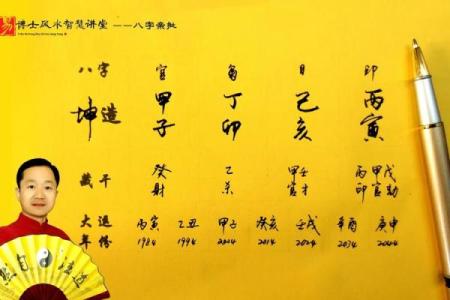 易 博士风水智慧讲堂 ——八字亲批
八字 官 枭 日 印
坤造 甲子 丁卯 己亥 丙寅
藏干 癸 乙 甲壬 丙甲戊
财 杀 官才 印官劫
大运 丙寅 乙丑 甲子 癸亥 壬戌 辛酉 庚申
年份 1984 1994 2004 2014 2024 2034 2044
然自法道